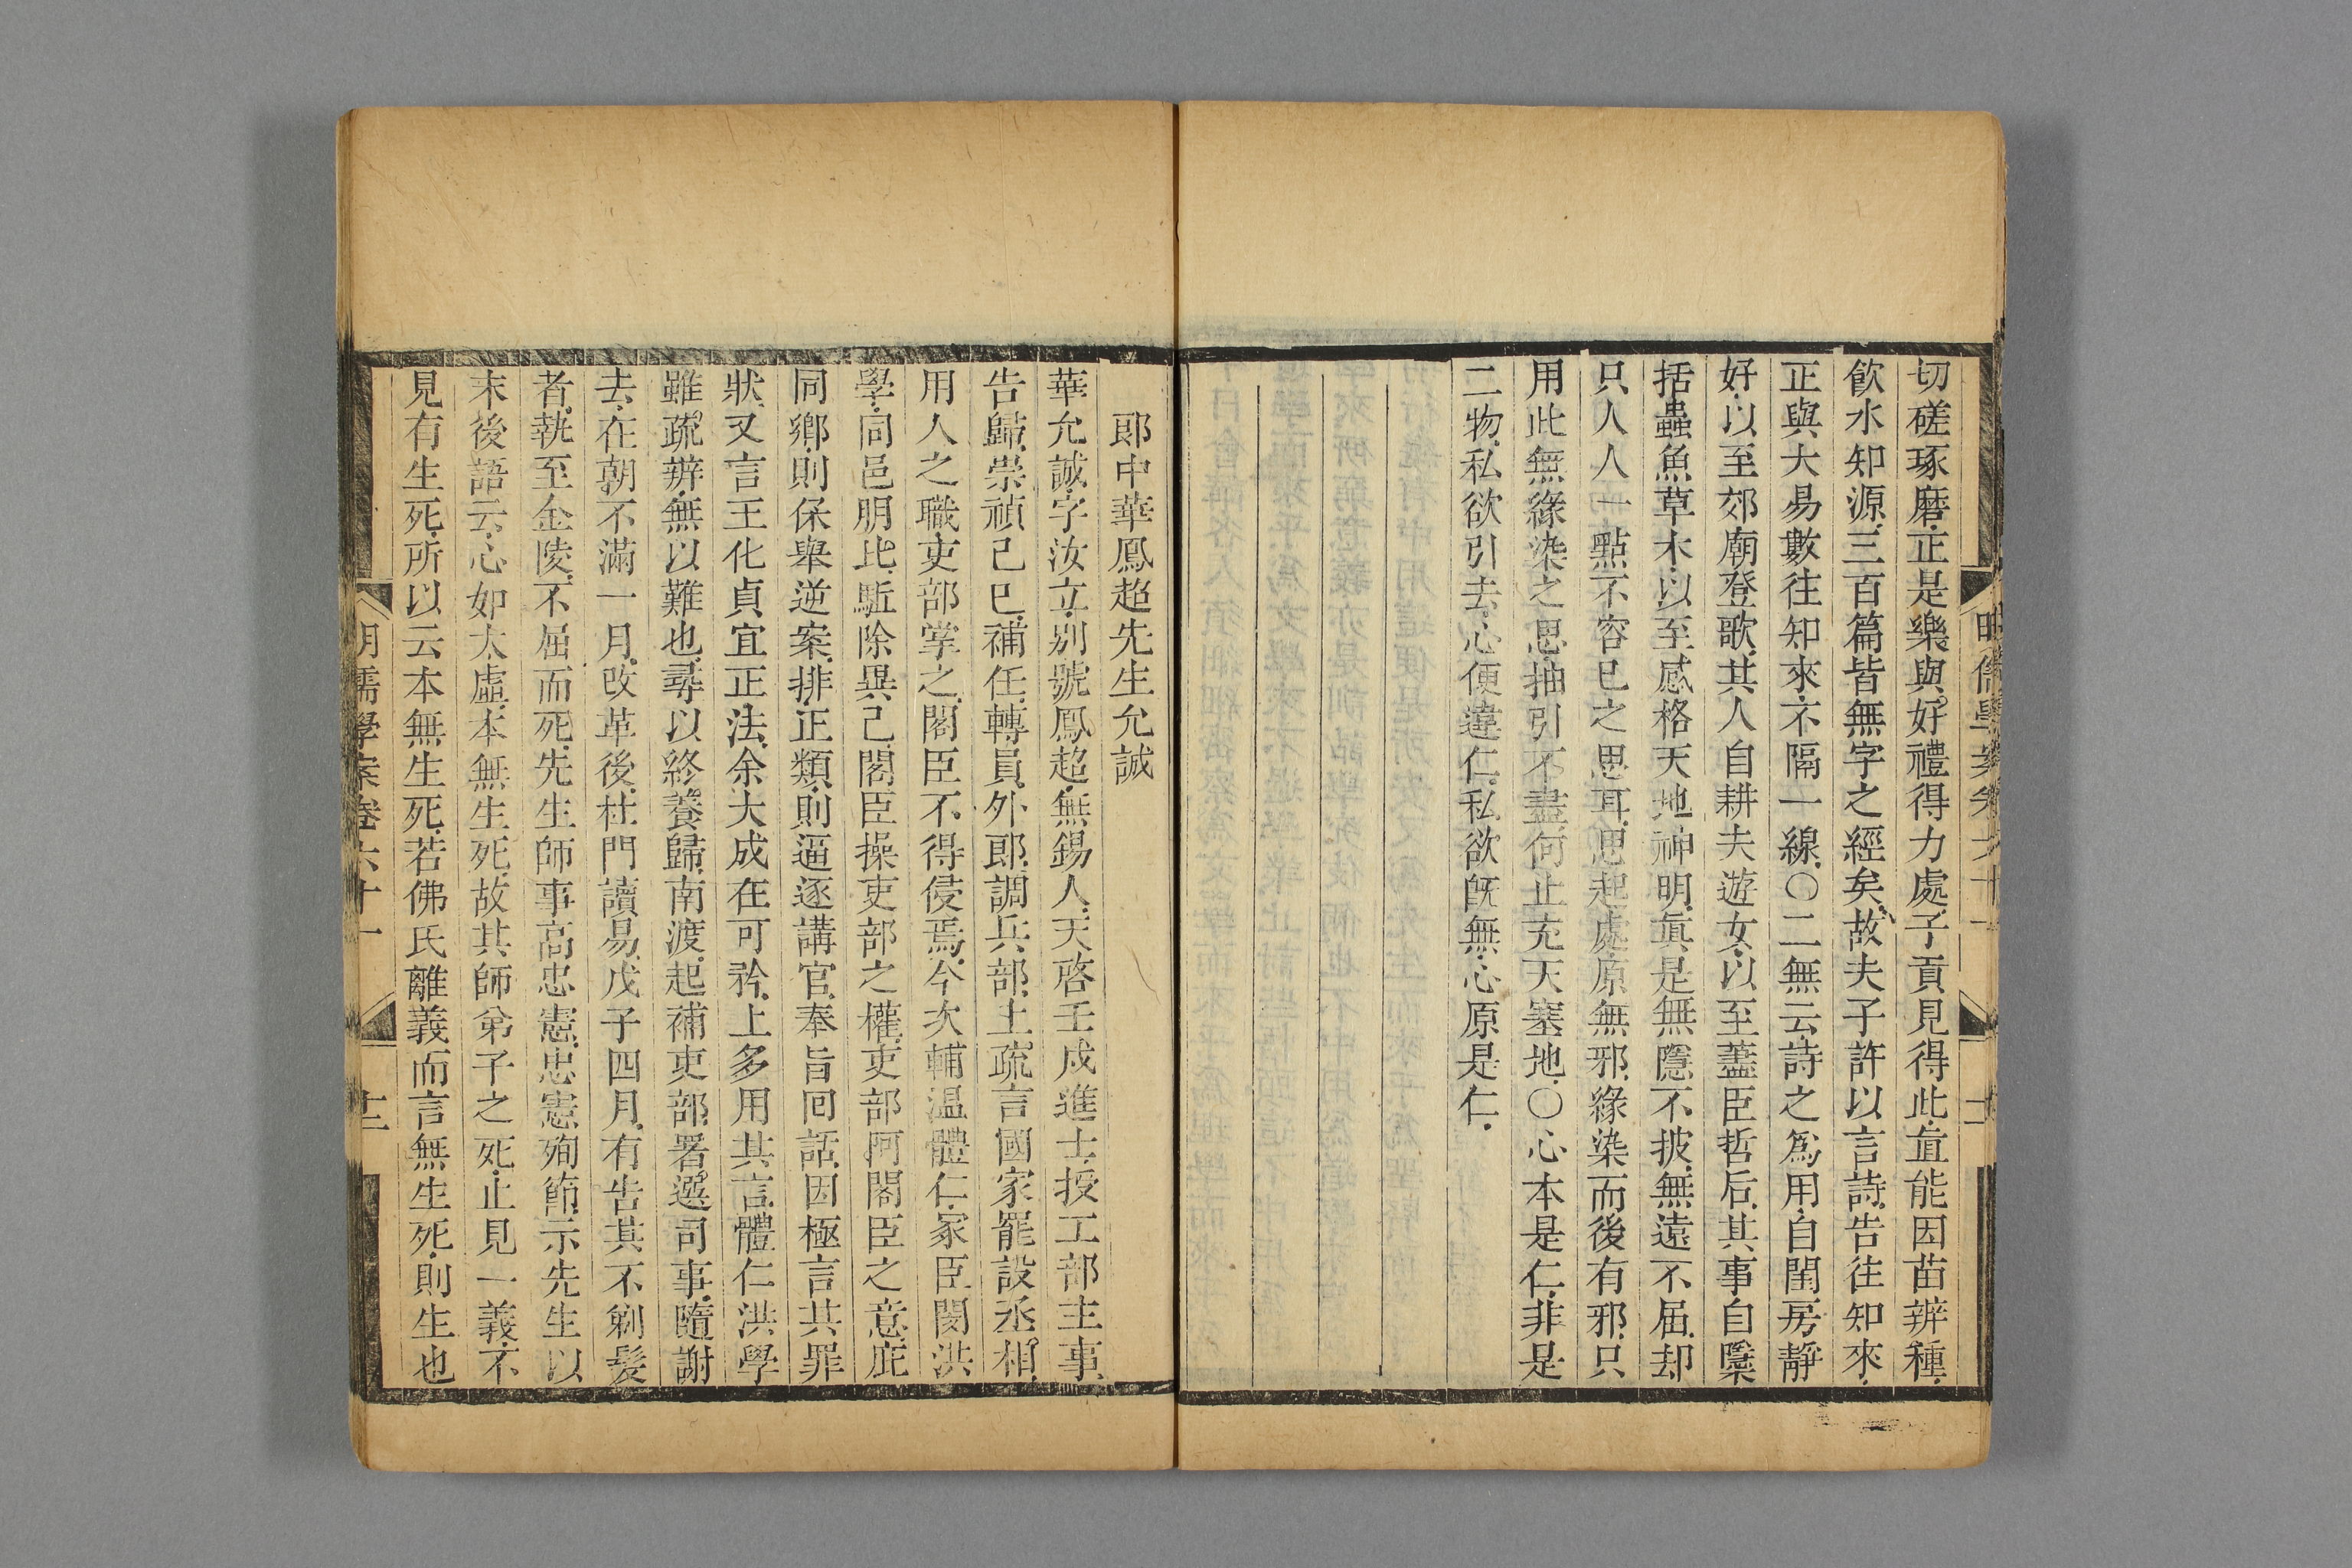 切磋琢磨正是樂與好禮得力處子貢見得此直能因苗辨種
飮水知源三百篇皆無字之經矣故夫子許以言詩告往知來
正與大易數往知來不隔一線〇二無云詩之爲用自閨房靜
好以至郊廟登歌其人自耕夫遊女以至藎臣哲后其事自檃
括蟲魚草木以至感格天地神明眞是無隱不披無遠不屆却
只人人一點不容已之思耳思起處原無邪緣染而後有邪只
用此無緣染之思抽引不盡何止充天塞地〇心本是仁非是
二物私欲引去心便違仁私欲旣無心原是仁
郎中華鳳超先生允誠
華允誠字汝立別號鳳超無錫人天啓壬戌進士授工部主事
告歸崇禎己巳補任轉員外郎調兵部上疏言國家罷設丞相
用人之職吏部掌之閣臣不得侵焉今次輔温體仁冢臣閔洪
學同邑朋比駈除異己閣臣操吏部之權吏部阿閣臣之意庇
同鄉則保舉逆案排正類則逼逐講官奉旨回話因極言其罪
狀又言王化貞宜正法余大成在可矜上多用其言體仁洪學
雖疏辨無以難也尋以終養歸南渡起補吏部署選司事隨謝
去在朝不滿一月改革後杜門讀易戊子四月有告其不剃髮
者執至金陵不屈而死先生師事高忠憲忠憲殉節示先生以
末後語云心如太虛本無生死故其師弟子之死止見一義不
見有生死所以云本無生死若佛氏離義而言無生死則生也
明儒學案卷六十一
十二